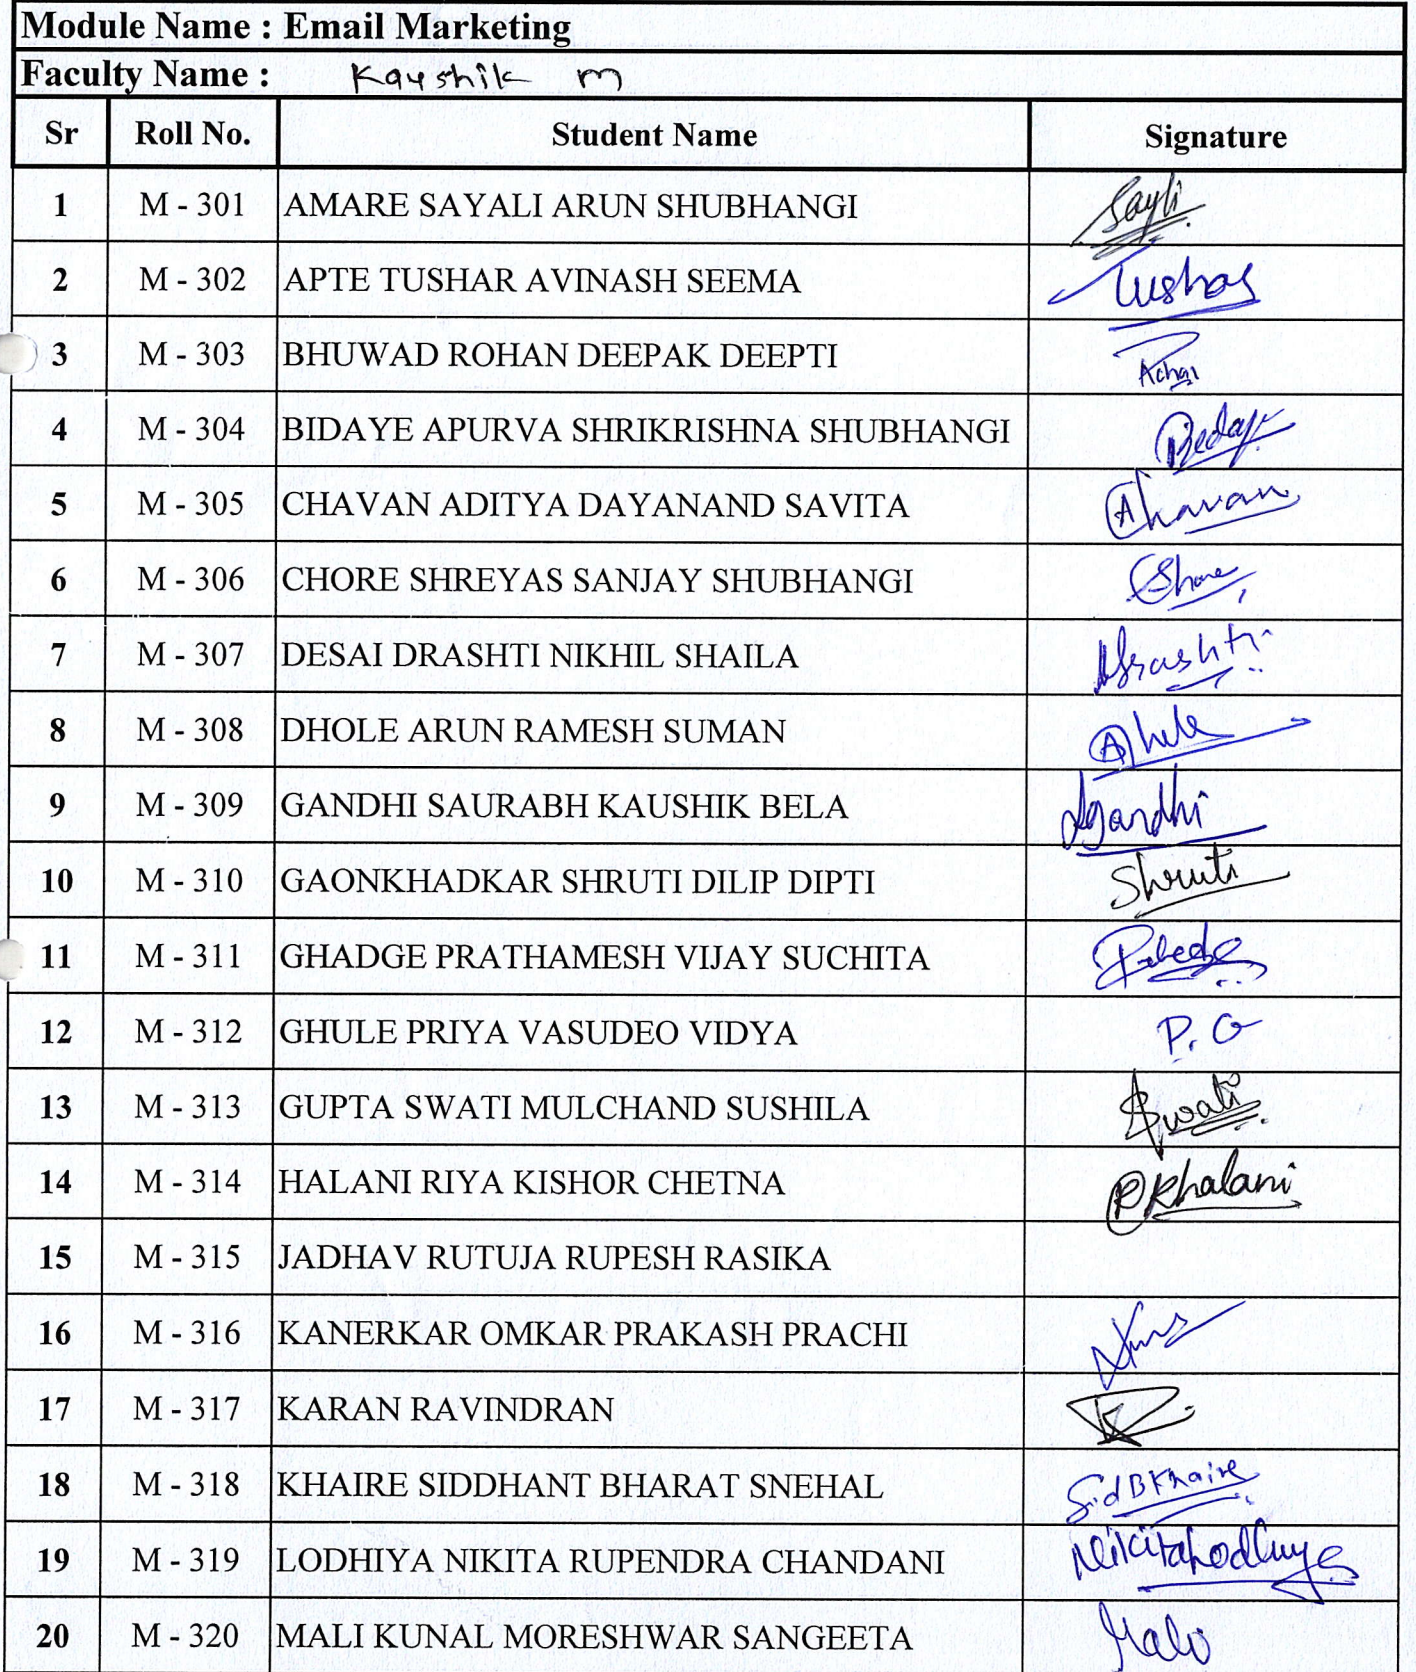 Module Name : Email Marketing
Faculty Name : Kaushik m
Sr Roll No. Student Name Signature
1 M - 301 AMARE SAYALI ARUN SHUBHANGI Sayli
2 M - 302 APTE TUSHAR AVINASH SEEMA Tushar
3 M - 303 BHUWAD ROHAN DEEPAK DEEPTI
4 M - 304 BIDAYE APURVA SHRIKRISHNA SHUBHANGI
5 M - 305 CHAVAN ADITYA DAYANAND SAVITA
6 M - 306 CHORE SHREYAS SANJAY SHUBHANGI
7 M - 307 DESAI DRASHTI NIKHIL SHAILA Drashti
8 M - 308 DHOLE ARUN RAMESH SUMAN
9 M - 309 GANDHI SAURABH KAUSHIK BELA Sgandhi
10 M - 310 GAONKHADKAR SHRUTI DILIP DIPTI Shruti
11 M - 311 GHADGE PRATHAMESH VIJAY SUCHITA
12 M - 312 GHULE PRIYA VASUDEO VIDYA P. G
13 M - 313 GUPTA SWATI MULCHAND SUSHILA Swati
14 M - 314 HALANI RIYA KISHOR CHETNA RKhalani
15 M - 315 JADHAV RUTUJA RUPESH RASIKA
16 M - 316 KANERKAR OMKAR PRAKASH PRACHI
17 M - 317 KARAN RAVINDRAN
18 M - 318 KHAIRE SIDDHANT BHARAT SNEHAL SidBKhaire
19 M - 319 LODHIYA NIKITA RUPENDRA CHANDANI
20 M - 320 MALI KUNAL MORESHWAR SANGEETA Mali